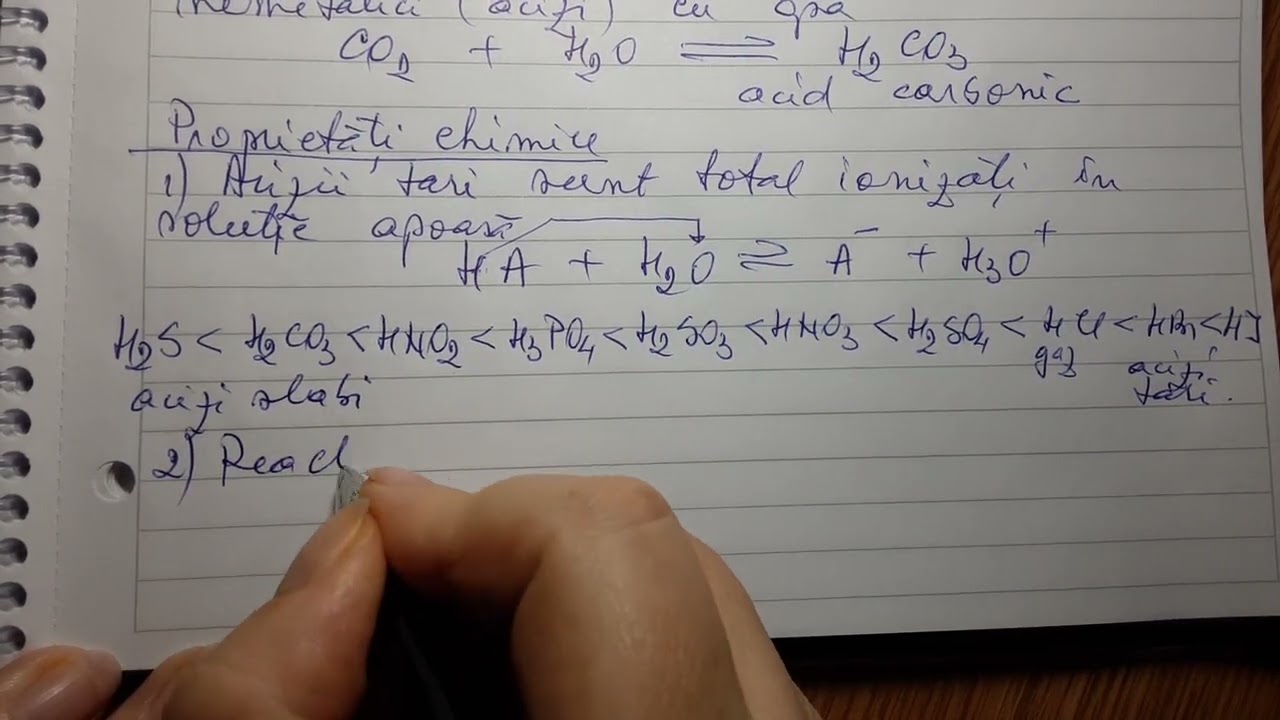 nemetalici (acizi) cu apa
CO2 + H2O ⇌ H2CO3
acid carbonic
Proprietăți chimice
1) Acizii tari sunt total ionizați în
soluție apoasă
HA + H2O ⇌ A⁻ + H3O⁺
H2S < H2CO3 < HNO2 < H3PO4 < H2SO3 < HNO3 < H2SO4 < HCl < HBr < HI
gaz acizi
acizi slabi tari.
2) Reac